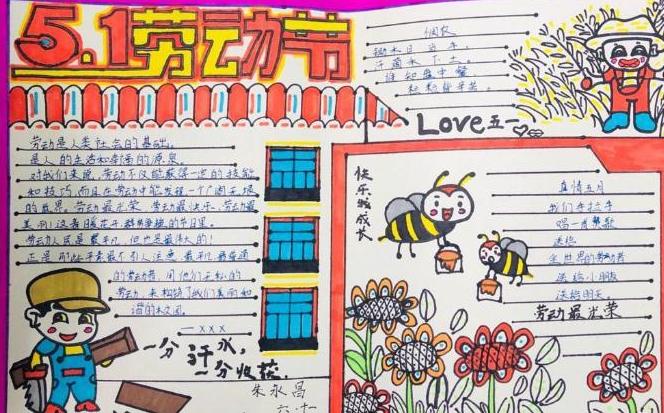 5.1劳动节
悯农
锄禾日当午,
汗滴禾下土。
谁知盘中餐,
粒粒皆辛苦。
Love五一
劳动是人类社会的基础,
是人的生活和幸福的源泉。
对我们来说,劳动不仅能获得一定的技能
和技巧,而且在劳动中能发现一个广阔无垠
的世界。劳动最光荣、劳动最快乐、劳动最
美丽!这春暖花开
的节日里。
劳动人民是最平凡,但也是最伟大的!
正是那些平素最不引人注意、最平凡最普通
的劳动者,用他们无私的
劳动,来构筑了我们美丽和
谐的校园。
一xxx
一分汗水,
一分收获。
朱永昌
六.十一
快乐成长
真情五月
我们手拉手
唱一首赞歌
送给
全世界的劳动者
送给小朋友
送给明天。
劳动最光荣